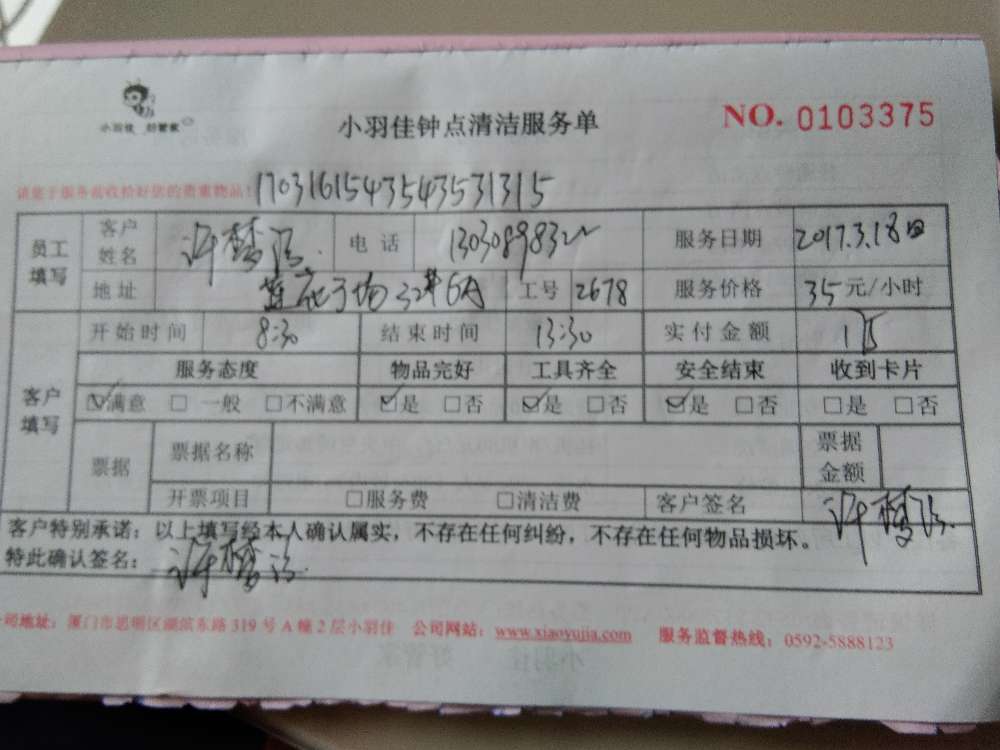 小羽佳 好管家
小羽佳钟点清洁服务单
NO. 0103375
请您于服务前收拾好您的贵重物品! 17031615435435 31315
员工填写 客户姓名 许梦 电话 服务日期 2017.3.18日
地址 32# 6A 工号 2678 服务价格 35元/小时
客户填写 开始时间 8:30 结束时间 13:30 实付金额
服务态度 物品完好 工具齐全 安全结束 收到卡片
☑满意 □一般 □不满意 ☑是 □否 ☑是 □否 ☑是 □否 □是 □否
票据 票据名称 票据金额
开票项目 □服务费 □清洁费 客户签名 许梦
客户特别承诺：以上填写经本人确认属实，不存在任何纠纷，不存在任何物品损坏。
特此确认签名： 许梦
公司地址：厦门市思明区湖滨东路319号A幢2层小羽佳 公司网站：www.xiaoyujia.com 服务监督热线：0592-5888123